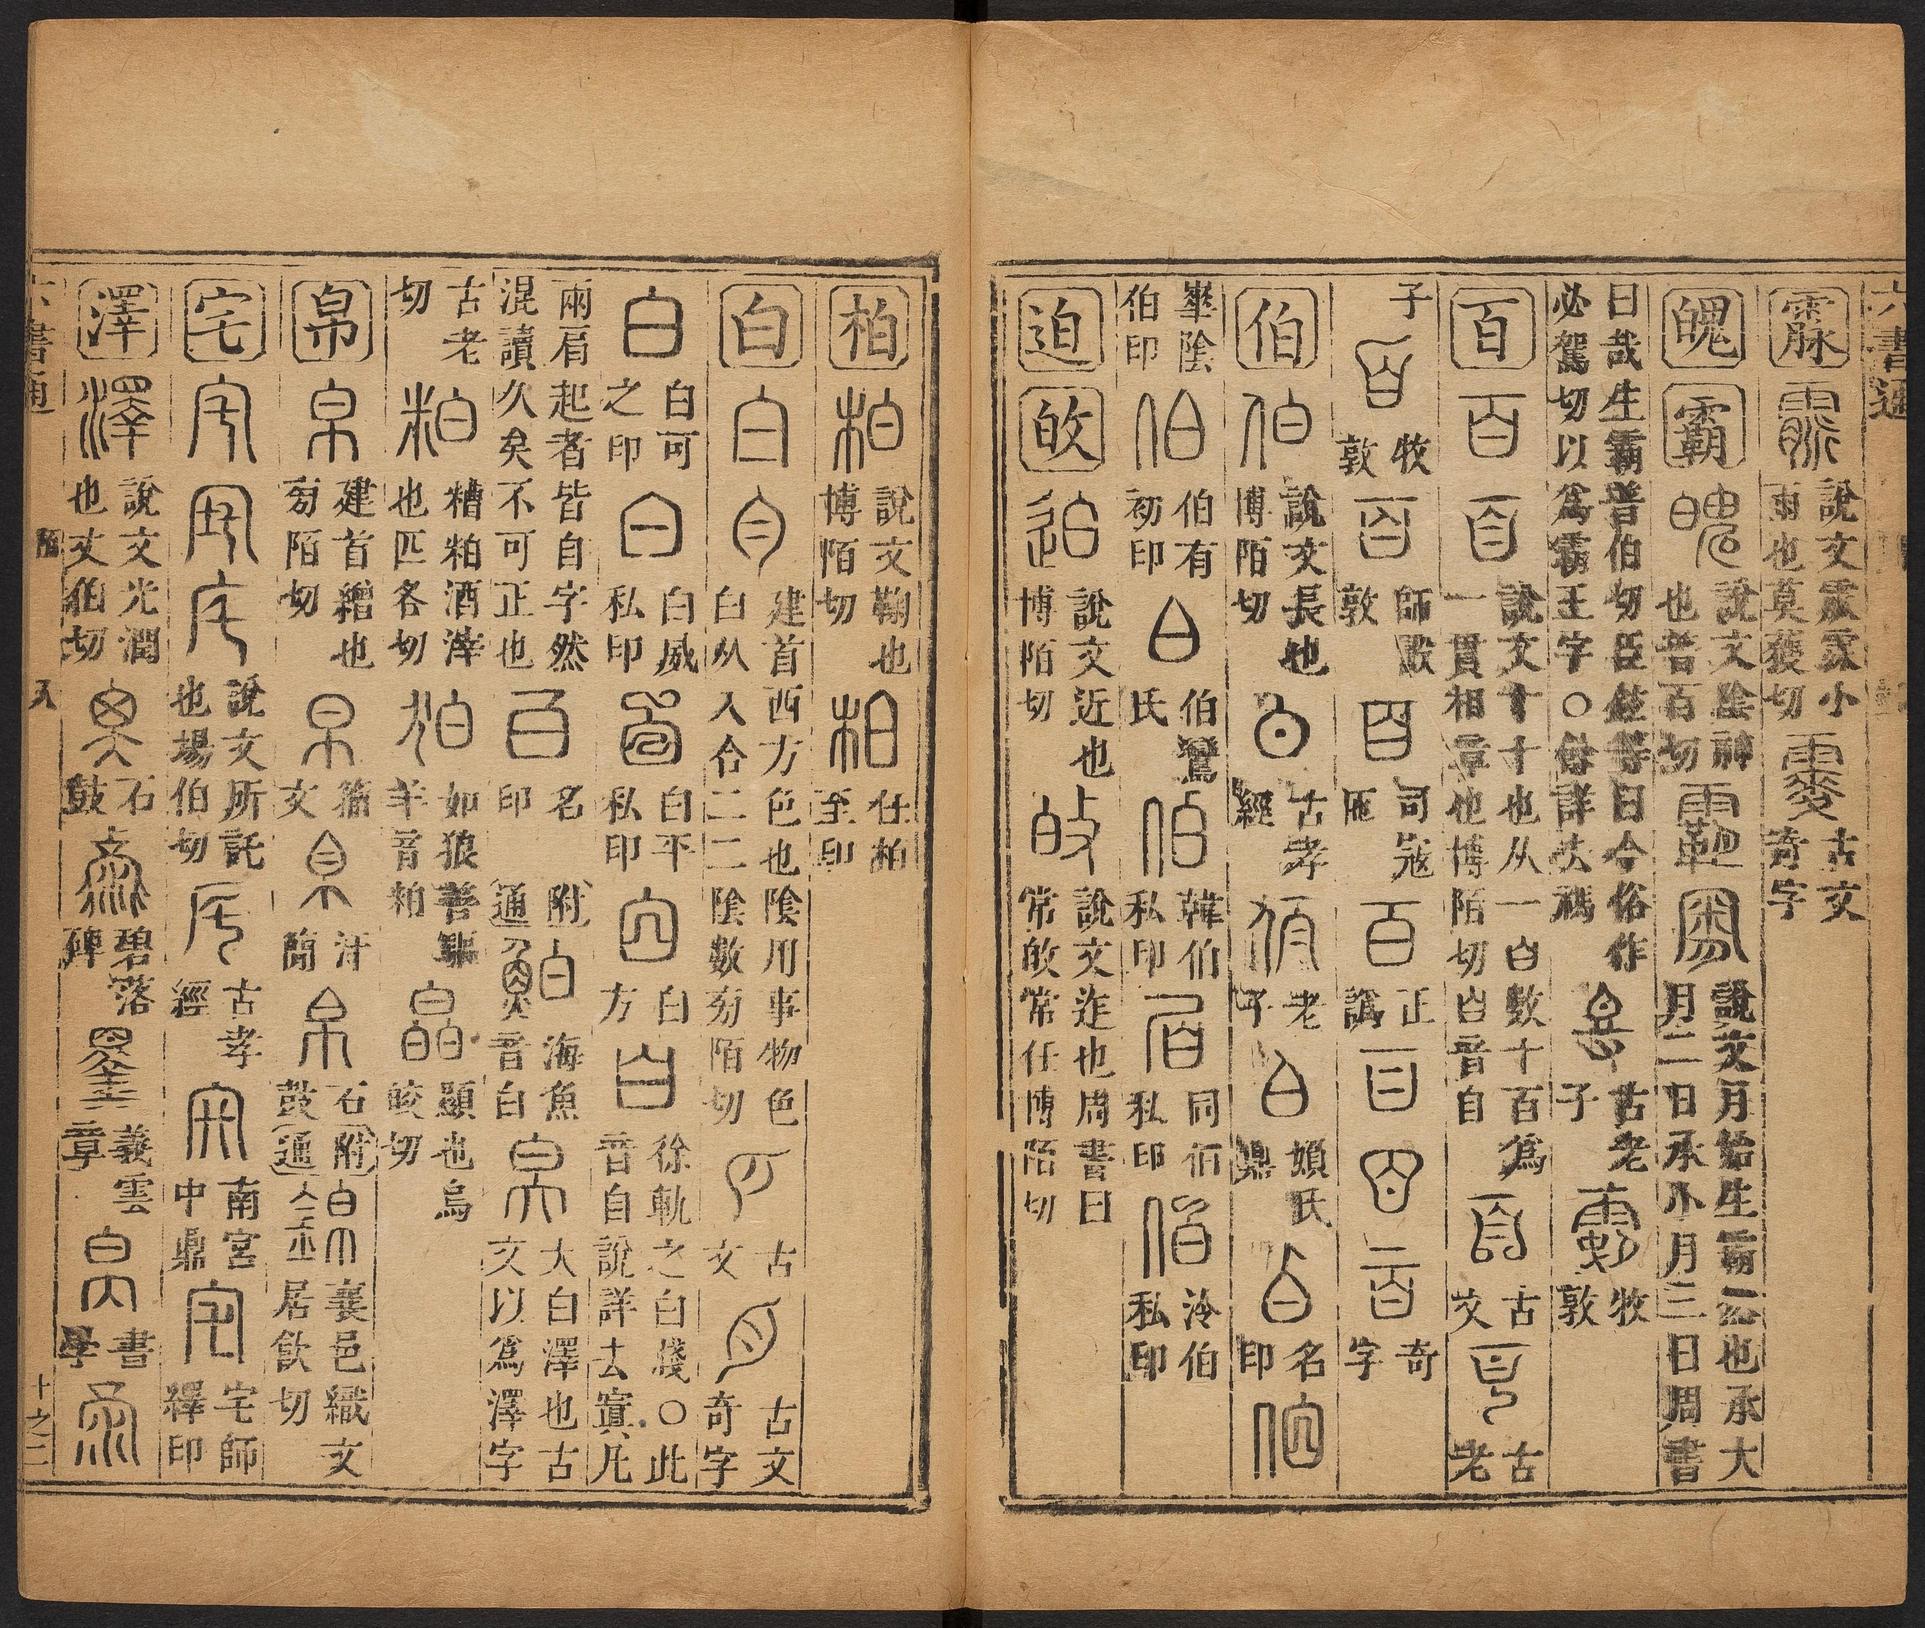 六書通
霢
說文霢霂小
雨也莫獲切
古文
奇字
魄
霸
說文陰神
也普百切
說文月始生霸然也承大
月二日承小月三日周書
曰哉生霸普伯切臣鉉等曰今俗作
必駕切以爲霸王字○俗詳去禡
古老
子
牧
敦
百
說文十十也从一白數十百爲
一貫相章也博陌切白音自
古
文
古
老
子
牧
敦
師𣪘
敦
司寇
匜
正
譌
奇
字
伯
說文長也
博陌切
古孝
經
老
子
頍氏
鼎
名
印
畢陰
伯印
伯有
初印
伯鸞
氏
韓伯
私印
同伯
私印
泠伯
私印
迫
敀
說文近也
博陌切
說文迮也周書曰
常敀常任博陌切
柏
說文鞠也
博陌切
任柏
至印
白
建首西方色也陰用事物色
白从入合二二陰數㫄陌切
古
文
古文
奇字
白可
之印
白威
私印
白平
私印
白
方
徐軌之白牋○此
音自說詳去寘凡
兩肩起者皆自字然
混讀久矣不可正也
名
印
附
通
海魚
音白
大白澤也古
文以爲澤字
古老
切
糟粕酒滓
也匹各切
如狼善驅
羊音粕
顯也烏
皎切
帛
建首繒也
㫄陌切
籀
文
汗
簡
石
鼓
附
通
襄邑織文
居飮切
宅
說文所託
也場伯切
古孝
經
南宮
中鼎
宅師
釋印
澤
說文光潤
也丈伯切
石
鼓
碧落
碑
義雲
章
書
學
六書通
陌
入
十之二